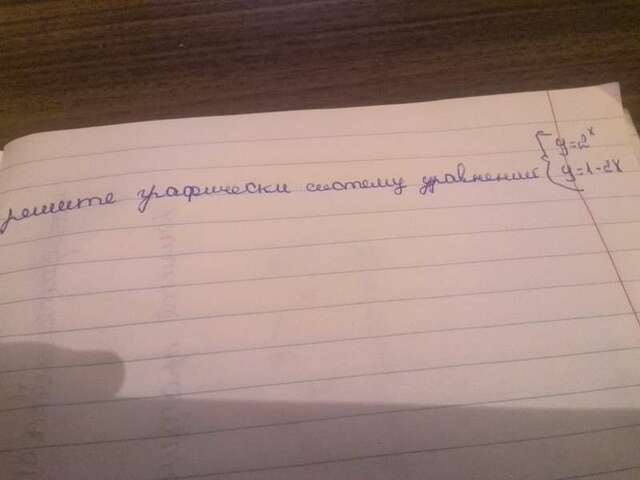 решите графически систему уравнений { y=2^x
y=1-2x